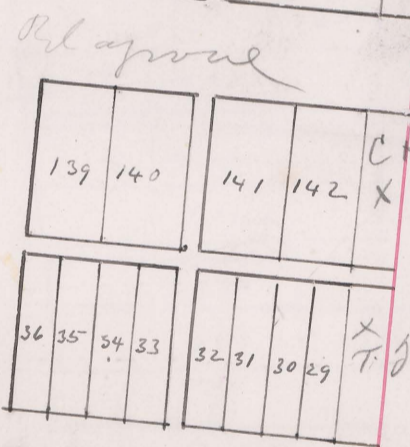 139 140 141 142 C
X
36 35 34 33 32 31 30 29 X
T.